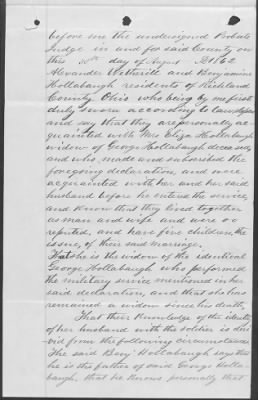 before me the undersigned Probate
Judge in and for said County on
this 30th day of August AD 1862
Alexander Wetherill and Benjamin
Hollabaugh residents of Richland
County Ohio who being by me first
duly sworn according to law depose
and say that they are personally ac
quainted with Mrs Eliza Hollabaugh
widow of George Hollabaugh deceased,
and who made and subscribed the
foregoing declaration, and were
acquainted with her and her said
husband before he entered the service,
and know that they lived together
as man and wife and were so
reputed, and have five children, the
issue, of their said marriage.
That she is the widow of the identical
George Hollabaugh who performed
the military service mentioned in her
said declaration, and that she has
remained a widow since his death,
That their Knowledge of the identity
of her husband with the soldier is deri
vid from the following circumstances
The said Benj. Hollabaugh says that
he is the father of said George Holla-
baugh, that he knows personally that